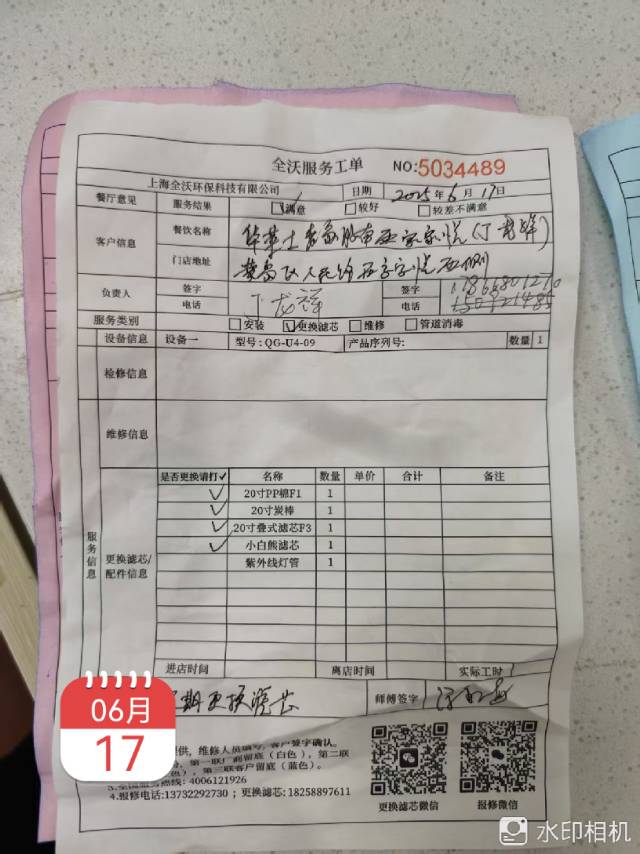 全沃服务工单 NO:5034489
上海全沃环保科技有限公司 日期 2025年6月17日
餐厅意见 服务结果 满意 较好 较差不满意
客户信息 餐饮名称 华莱士
门店地址
负责人 签字 丁龙祥 签字
电话 电话
服务类别 安装 更换滤芯 维修 管道消毒
设备信息 设备一 型号:QG-U4-09 产品序列号: 数量 1
检修信息
维修信息
服务信息
更换滤芯/配件信息
是否更换请打✓ 名称 数量 单价 合计 备注
✓ 20寸PP棉F1 1
✓ 20寸炭棒 1
✓ 20寸叠式滤芯F3 1
✓ 小白熊滤芯 1
紫外线灯管 1
进店时间 离店时间 实际工时
期更换滤芯 师傅签字
06月
17
提供,维修人员填写,客户签字确认。
第一联厂商留底(白色),第二联
色),第三联客户留底(蓝色)。
3.全国服务热线:4006121926
4.报修电话:13732292730;更换滤芯:18258897611
更换滤芯微信 报修微信
水印相机